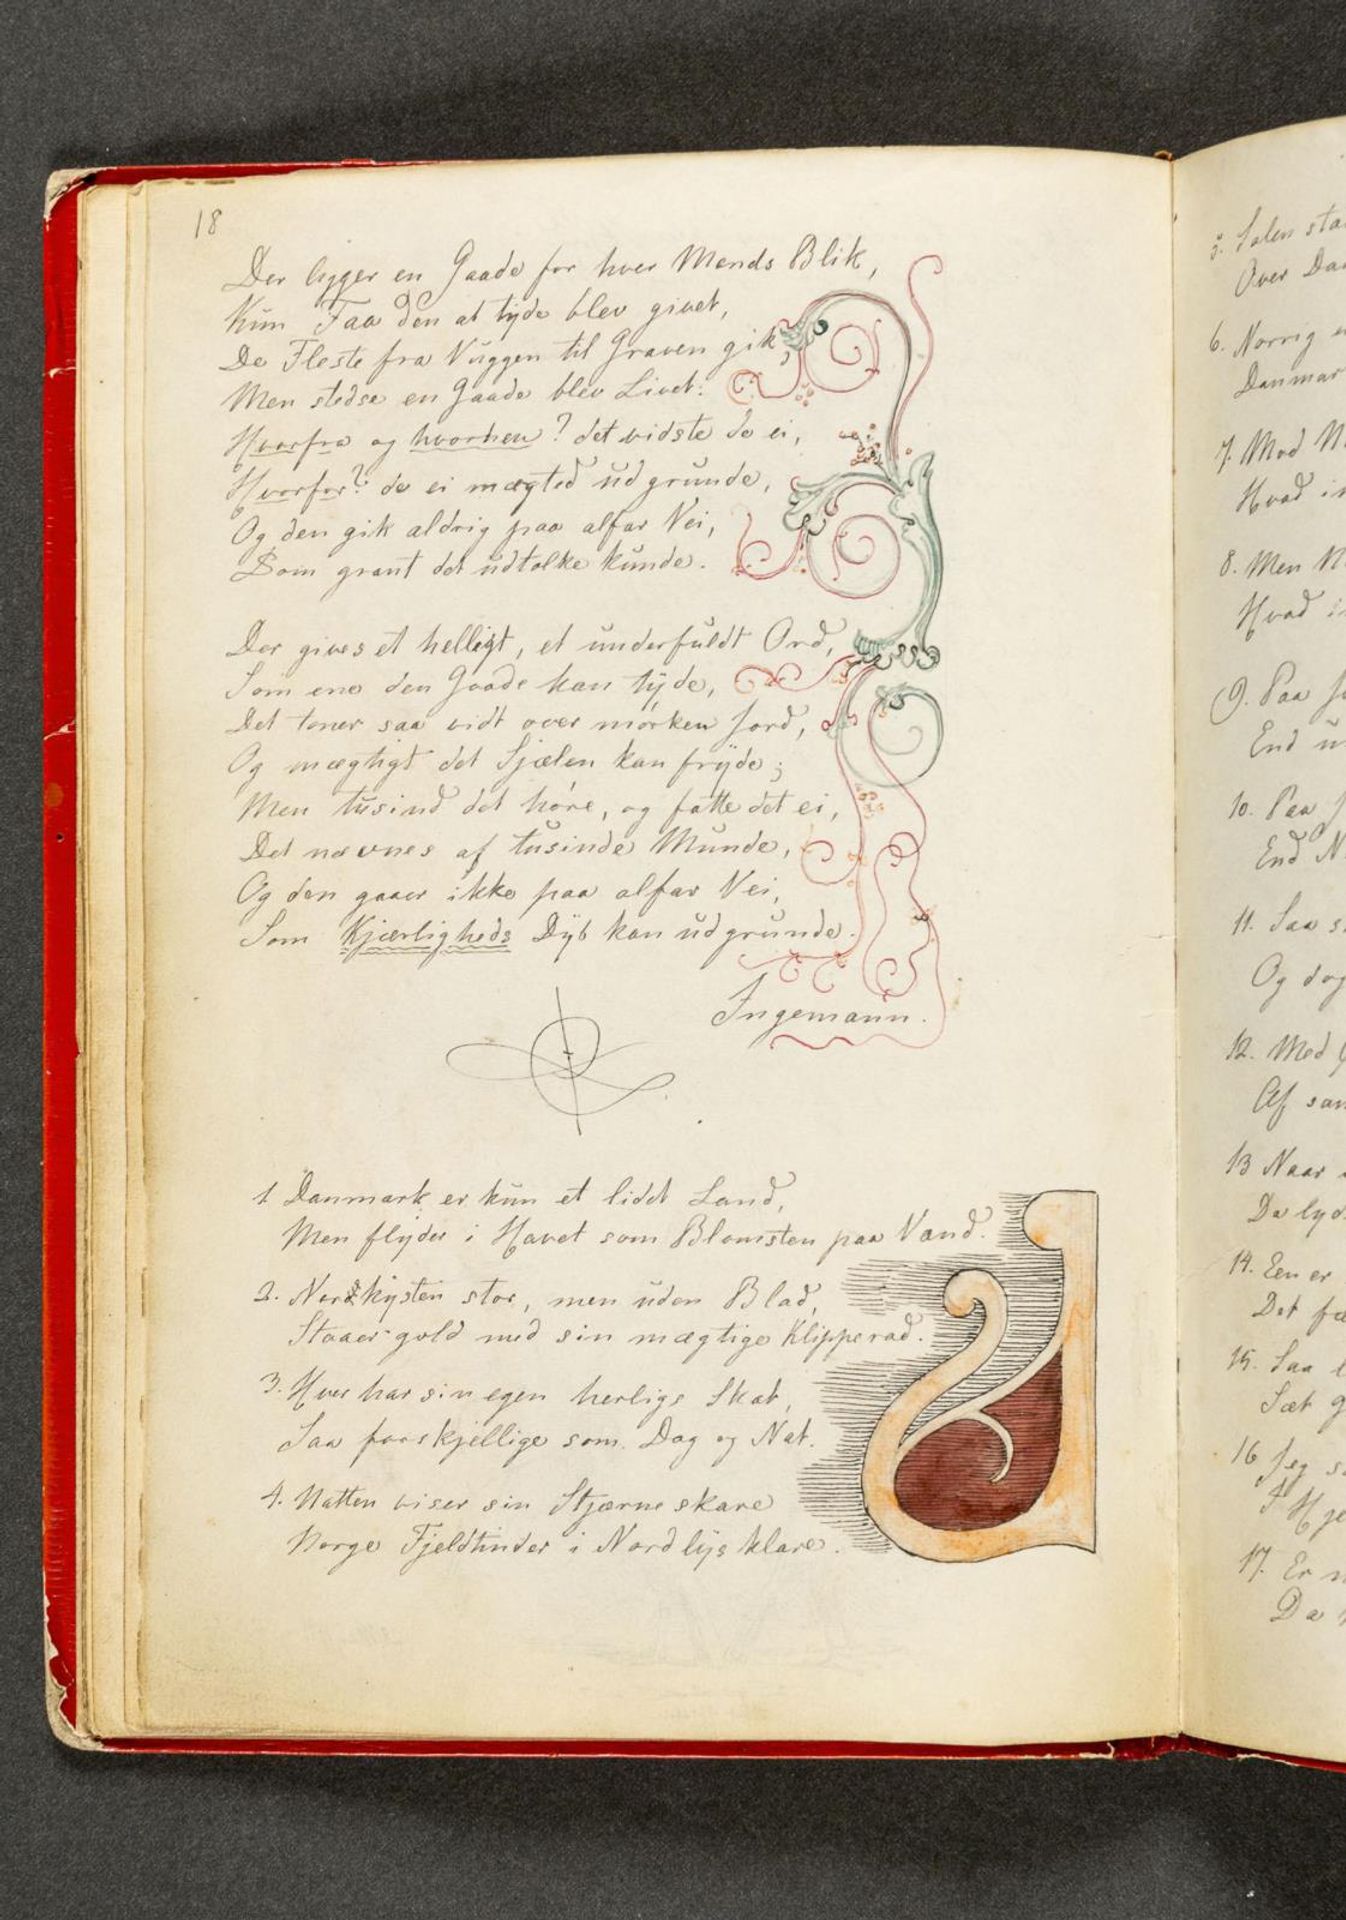 18
Der ligger en Gaade for hver Mands Blik,
Kun Faa den at tyde blev givet,
De Fleste fra Vuggen til Graven gik,
Men stedse en Gaade blev Livet:
Hvorfra og hvorhen? det vidste de ei,
Hvorfor? de ei mægted udgrunde,
Og den gik aldrig paa alfar Vei,
Som grant det udtolke kunde.
Der gives et helligt, et underfuldt Ord,
Som ene den Gaade kan tyde,
Det toner saa vidt over mørken Jord,
Og mægtigt det Sjælen kan fryde;
Men tusind det høre, og fatte det ei,
Det nævnes af tusinde Munde,
Og den gaaer ikke paa alfar Vei,
Som Kjærligheds Dyb kan udgrunde.
Ingemann.
1 Danmark er kun et lidet Land,
Men flyder i Havet som Blomsten paa Vand.
2. Nordkysten stor, men uden Blad,
Staaer gold med sin mægtige Klipperad.
3. Hver har sin egen herlige Skat,
Saa forskjellige som Dag og Nat.
4. Natten viser sin Stjærneskare
Norge Fjeldtinder i Nordlys klare.
5. Solen
Over
6. Norrig
7. Mod
Hvad
8. Men
Hvad
9. Paa
End
10. Paa
End
11. Saa
Og
12. Med
Af
13 Naar
Da
14. Een er
Det
15. Saa
Sæt
16 Jeg
I
17. Er
Da